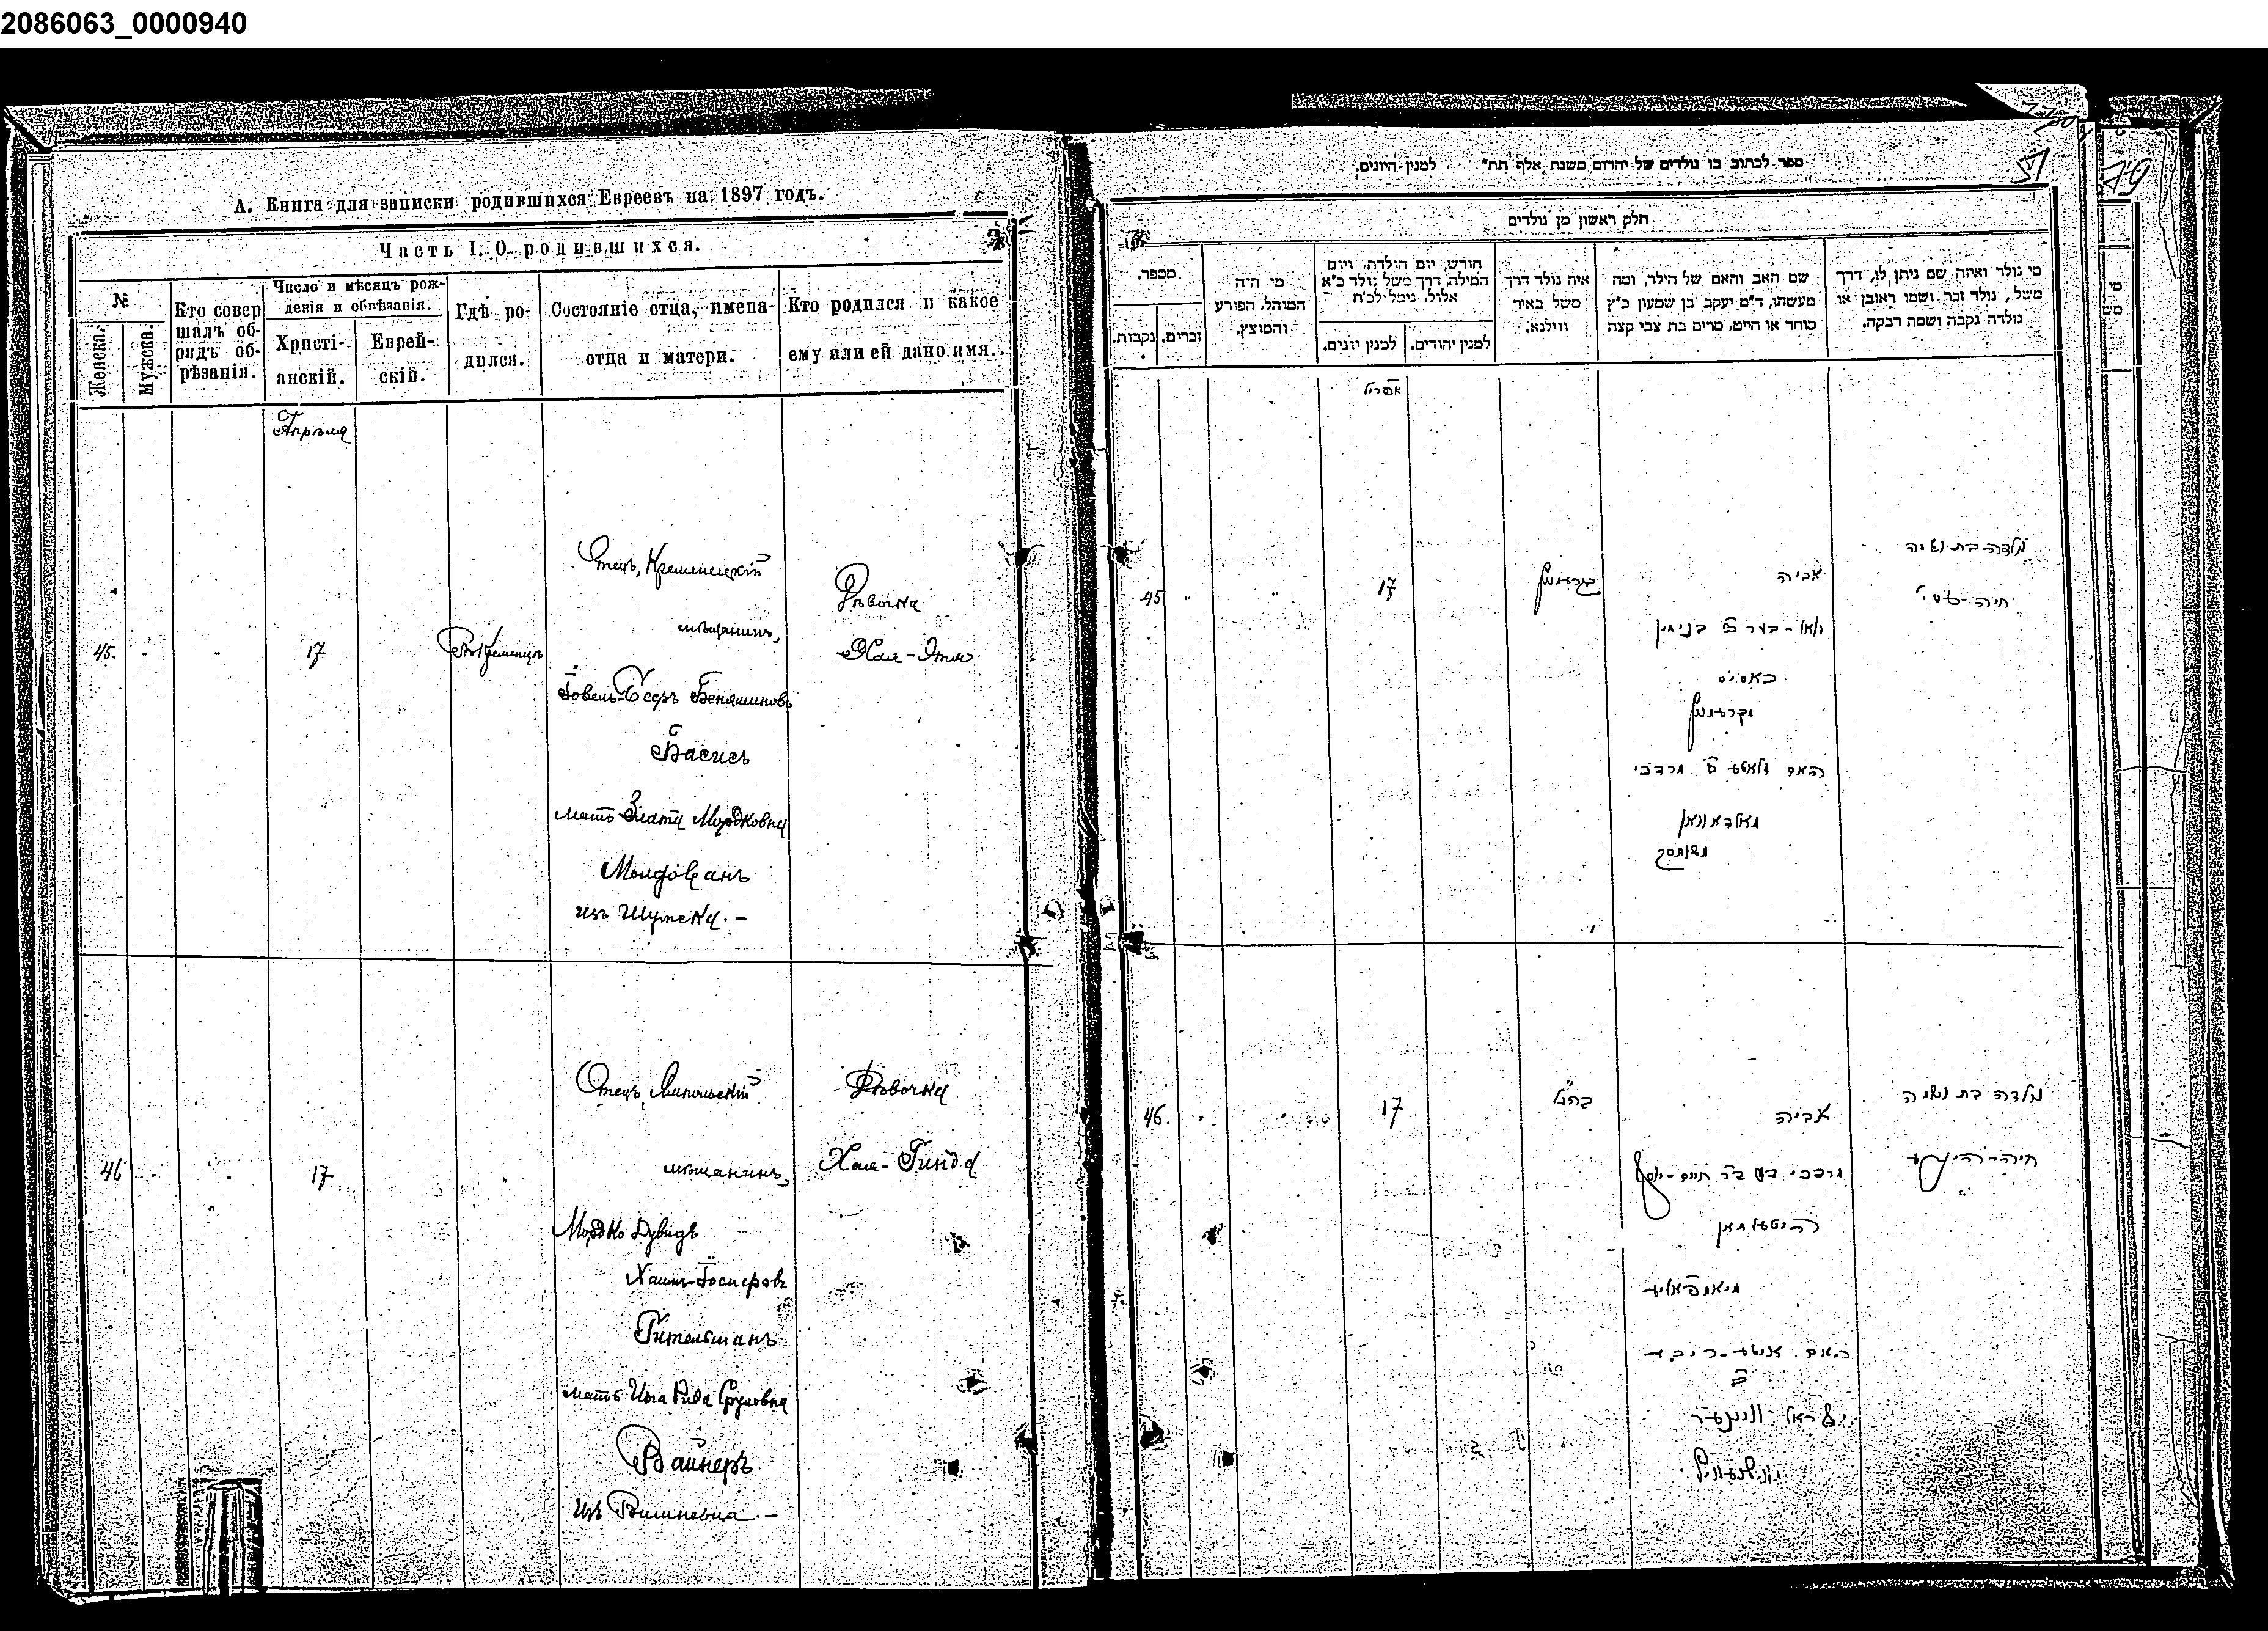 2086063_0000940
А. Книга для записки родившихся Евреевъ на 1897 годъ.
Часть I. О родившихся.
№
Женска.
Мужска.
Кто совер
шалъ об-
рядъ об-
рѣзанія.
Число и мѣсяцъ рож-
денія и обрѣзанія.
Христі-
анскій.
Еврей-
скій.
Гдѣ ро-
дился.
Состояніе отца, имена
отца и матери.
Кто родился и какое
ему или ей дано имя.
Апрѣля
45.
17
Въ Кременцѣ
Отецъ, Кременецкій
мѣщанинъ,
Іовель-Беръ Беняминовъ
Басисъ
мать Злата Мордковна
Молдованъ
изъ Шумска. -
Дѣвочка
Хая-Этля
46
17
Отецъ, Ямпольскій
мѣщанинъ,
Мордко Дувидъ
Хаимъ-Іосиповъ
Гительманъ
мать Ита Рива Сруловна
Вайнеръ
изъ Вишневца. -
Дѣвочка
Хая-Гинда
ספר לכתוב בו נולדים של יהדום משנת אלף תת" למנין היונים.
51
79
חלק ראשון מן נולדים
מספר.
נקבות.
זכרים.
מי היה
המוהל, הפורע
והמוצץ.
חודש, יום הולדת, ויום
המילה, דרך משל נולד כ"א
אלול, נימל לכ"ח
למנין יונים.
למנין יהודים.
איה נולד דרך
משל באיר
ווילנא.
שם האב והאם של הילד, ומה
מעשהו, ד"מ יעקב בן שמעון כ"ץ
סוחר או חייט, מרים בת צבי קצה
מי נולד ואיזה שם ניתן לו, דרך
משל, נולד זכר ושמו ראובן או
נולדה נקבה ושמה רבקה.
אפריל
45
17
אביה
באסיס
מקרעמניץ
האם זלאטע ב מרדכי
מאלדאוואן
משומסק
נולדה בת ושמה
46.
17
כהנ"ל
אביה
היטעלמאן
מיאמפאליע
ישראל וויינער
נולדה בת ושמה